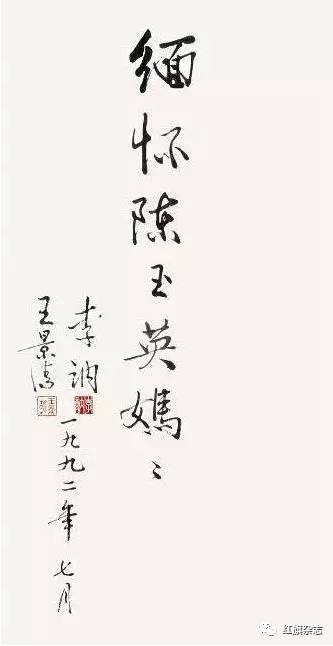 缅怀陈玉英妈〻
李讷
王景清
一九九二年七月
红旗杂志